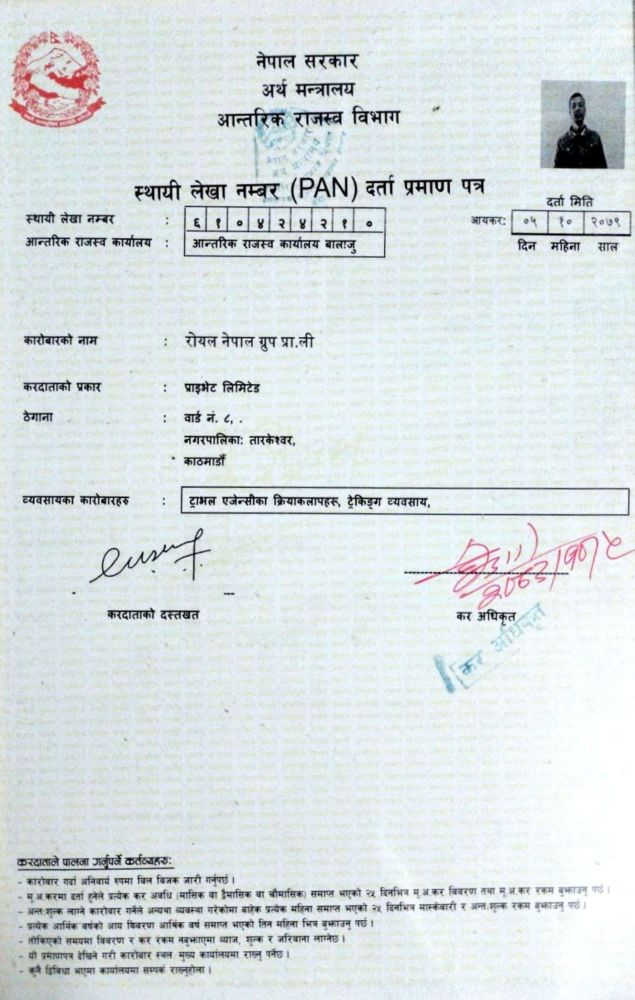 नेपाल सरकार
अर्थ मन्त्रालय
आन्तरिक राजस्व विभाग
स्थायी लेखा नम्बर (PAN) दर्ता प्रमाण पत्र
दर्ता मिति
स्थायी लेखा नम्बर : ६ १ ० ४ २ ४ २ १ ०
आयकर: ०५ १० २०७९
आन्तरिक राजस्व कार्यालय : आन्तरिक राजस्व कार्यालय बालाजु
दिन महिना साल
कारोबारको नाम : रोयल नेपाल ग्रुप प्रा.ली
करदाताको प्रकार : प्राइभेट लिमिटेड
ठेगाना : वार्ड नं. ८, .
नगरपालिका: तारकेश्वर,
काठमाडौं
व्यवसायका कारोबारहरु : ट्राभल एजेन्सीका क्रियाकलापहरू, ट्रेकिङ्ग व्यवसाय,
करदाताको दस्तखत
कर अधिकृत
कर अधिकृत
करदाताले पालना गर्नुपर्ने कर्तव्यहरु:
- कारोबार गर्दा अनिवार्य रुपमा विल विजक जारी गर्नुपर्छ ।
- मू.अ.करमा दर्ता हुनेले प्रत्येक कर अवधि (मासिक वा द्वैमासिक वा चौमासिक) समाप्त भएको २५ दिनभित्र मू.अ.कर विवरण तथा मू.अ.कर रकम बुझाउनु पर्छ ।
- अन्तःशुल्क लाग्ने कारोबार गर्नेले अन्यथा व्यवस्था गरेकोमा बाहेक प्रत्येक महिना समाप्त भएको २५ दिनभित्र मास्केवारी र अन्तःशुल्क रकम बुझाउनु पर्छ ।
- प्रत्येक आर्थिक बर्षको आय विवरण आर्थिक बर्ष समाप्त भएको तिन महिना भित्र बुझाउनु पर्छ ।
- तोकिएको समयमा विवरण र कर रकम नबुझाएमा ब्याज, शुल्क र जरिवाना लाग्नेछ ।
- यो प्रमाणपत्र देखिने गरी कारोबार स्थल मुख्य कार्यालयमा राख्नु पर्नेछ ।
- कुनै द्विविधा भएमा कार्यालयमा सम्पर्क राख्नुहोला ।